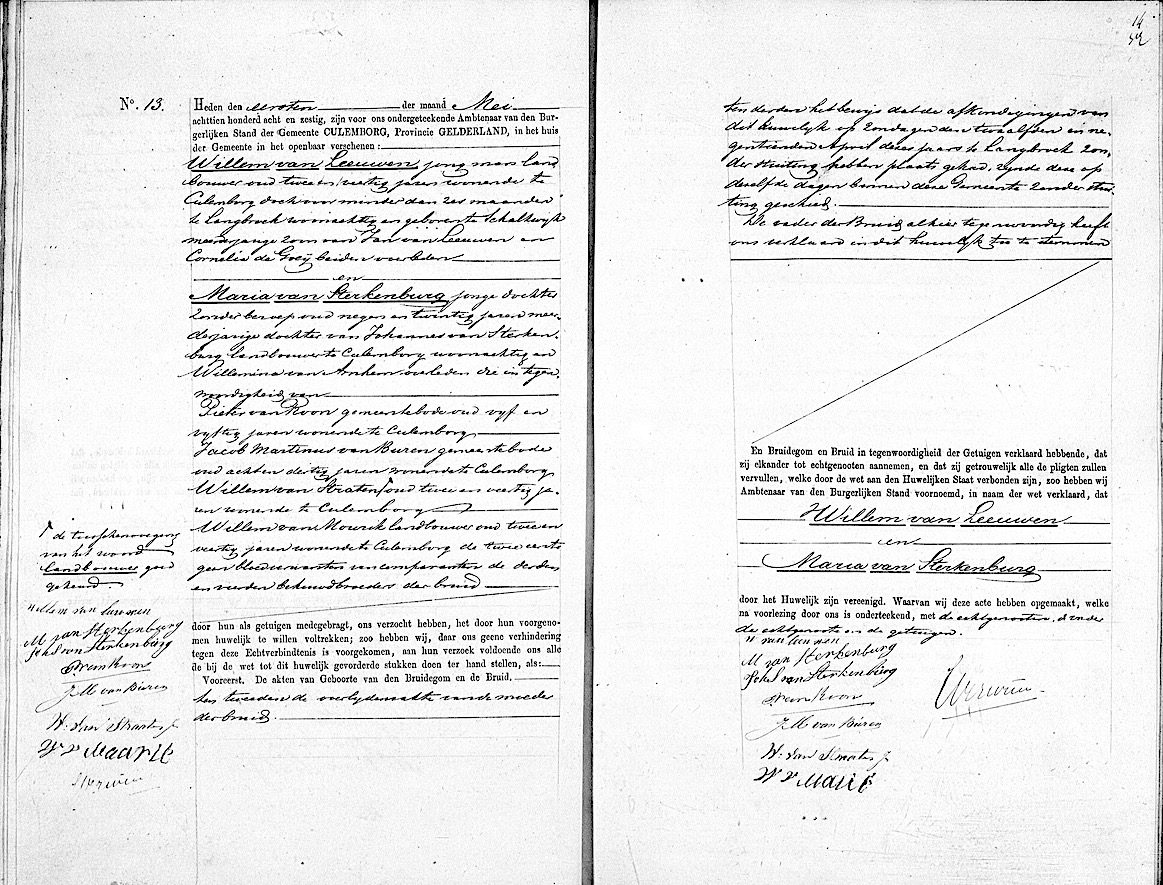 No. 13.
Heden den eersten der maand Mei
achttien honderd acht en zestig, zijn voor ons ondergeteekende Ambtenaar van den Bur-
gerlijken Stand der Gemeente CULEMBORG, Provincie GELDERLAND, in het huis
der Gemeente in het openbaar verschenen:
Willem van Leeuwen, jong man land
bouwer oud twee en veertig jaren wonende te
Culemborg doch voor minder dan zes maanden
te Langbroek woonachtig en geboren te Schalkwijk
meerderjarige zoon van Jan van Leeuwen en
Cornelia de Gooij beiden overleden
en
Maria van Sterkenburg jonge dochter
zonder beroep oud negen en twintig jaren meer-
derjarige dochter van Johannes van Sterken-
burg landbouwer te Culemborg woonachtig en
Willemina van Arnhem overleden die in tegen-
woordigheid van
Pieter van Koon gemeentebode oud vyf en
vyftig jaren wonende te Culemborg
Jacob Martinus van Buren gemeentebode
oud acht en dertig jaren wonende te Culemborg
Willem van Straten oud twee en veertig ja-
ren wonende te Culemborg
Willem van Mourik landbouwer oud twee en
veertig jaren wonende te Culemborg de twee eerste
geen bloedverwanten van comparanten de derde
en vierden behuwdbroeders der bruid
door hun als getuigen medegebragt, ons verzocht hebben, het door hun voorgeno-
men huwelijk te willen voltrekken; zoo hebben wij, daar ons geene verhindering
tegen deze Echtverbindtenis is voorgekomen, aan hun verzoek voldoende ons alle
de bij de wet tot dit huwelijk gevorderde stukken doen ter hand stellen, als:
Vooreerst. De akten van Geboorte van den Bruidegom en de Bruid.
ten tweeden de overlydensakte van de moeder
der bruid.
de tusschenvoeging
van het woord
landbouwer goed
gekeurd
Willem van Leeuwen
M van Sterkenburg
Joh S van Sterkenburg
P van Koon
J. M. van Buren
W. van Straten
W v Maurik
14
ten derden het bewys dat de afkondigingen van
dit huwelyk op Zondagen den twaalfden en ne-
gentienden April dezes jaars te Langbroek zon-
der stuiting hebben plaats gehad, zynde deze op
dezelfde dagen binnen deze Gemeente zonder stui-
ting geschied.
De vader der Bruid alhier tegenwoordig heeft
ons verklaard in dit huwelyk toe te stemmen
En Bruidegom en Bruid in tegenwoordigheid der Getuigen verklaard hebbende, dat
zij elkander tot echtgenooten aannemen, en dat zij getrouwelijk alle de pligten zullen
vervullen, welke door de wet aan den Huwelijken Staat verbonden zijn, zoo hebben wij
Ambtenaar van den Burgerlijken Stand voornoemd, in naam der wet verklaard, dat
Willem van Leeuwen
en
Maria van Sterkenburg
door het Huwelijk zijn vereenigd. Waarvan wij deze acte hebben opgemaakt, welke
na voorlezing door ons is onderteekend, met de echtgenooten, de vader
der echtgenoote en de getuigen.
W van Leeuwen
M van Sterkenburg
Joh S van Sterkenburg
P van Koon
J M van Buren
W. van Straten
W v Maurik